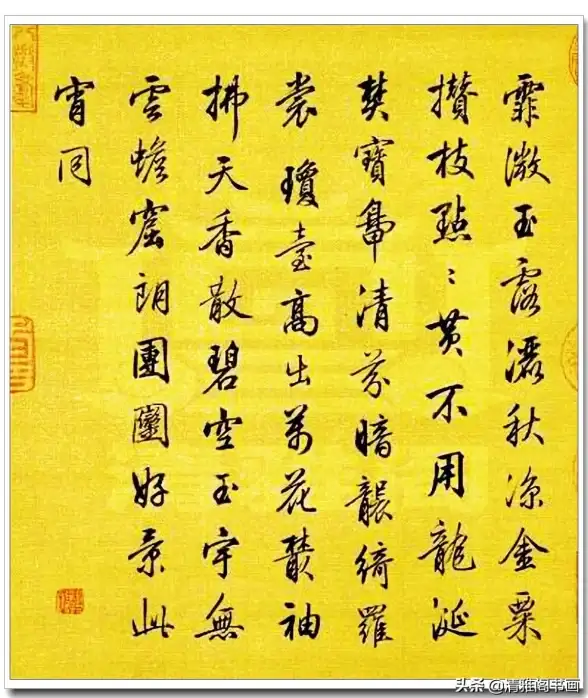 霏微玉露灑秋凉金粟
攢枝點〻黄不用龍涎
焚寶鼎清芬暗襲綺羅
裳瓊臺高出萬花叢袖
拂天香散碧空玉宇無
雲蟾窟朗團圞好景此
宵同
头条 @清雅阁书画